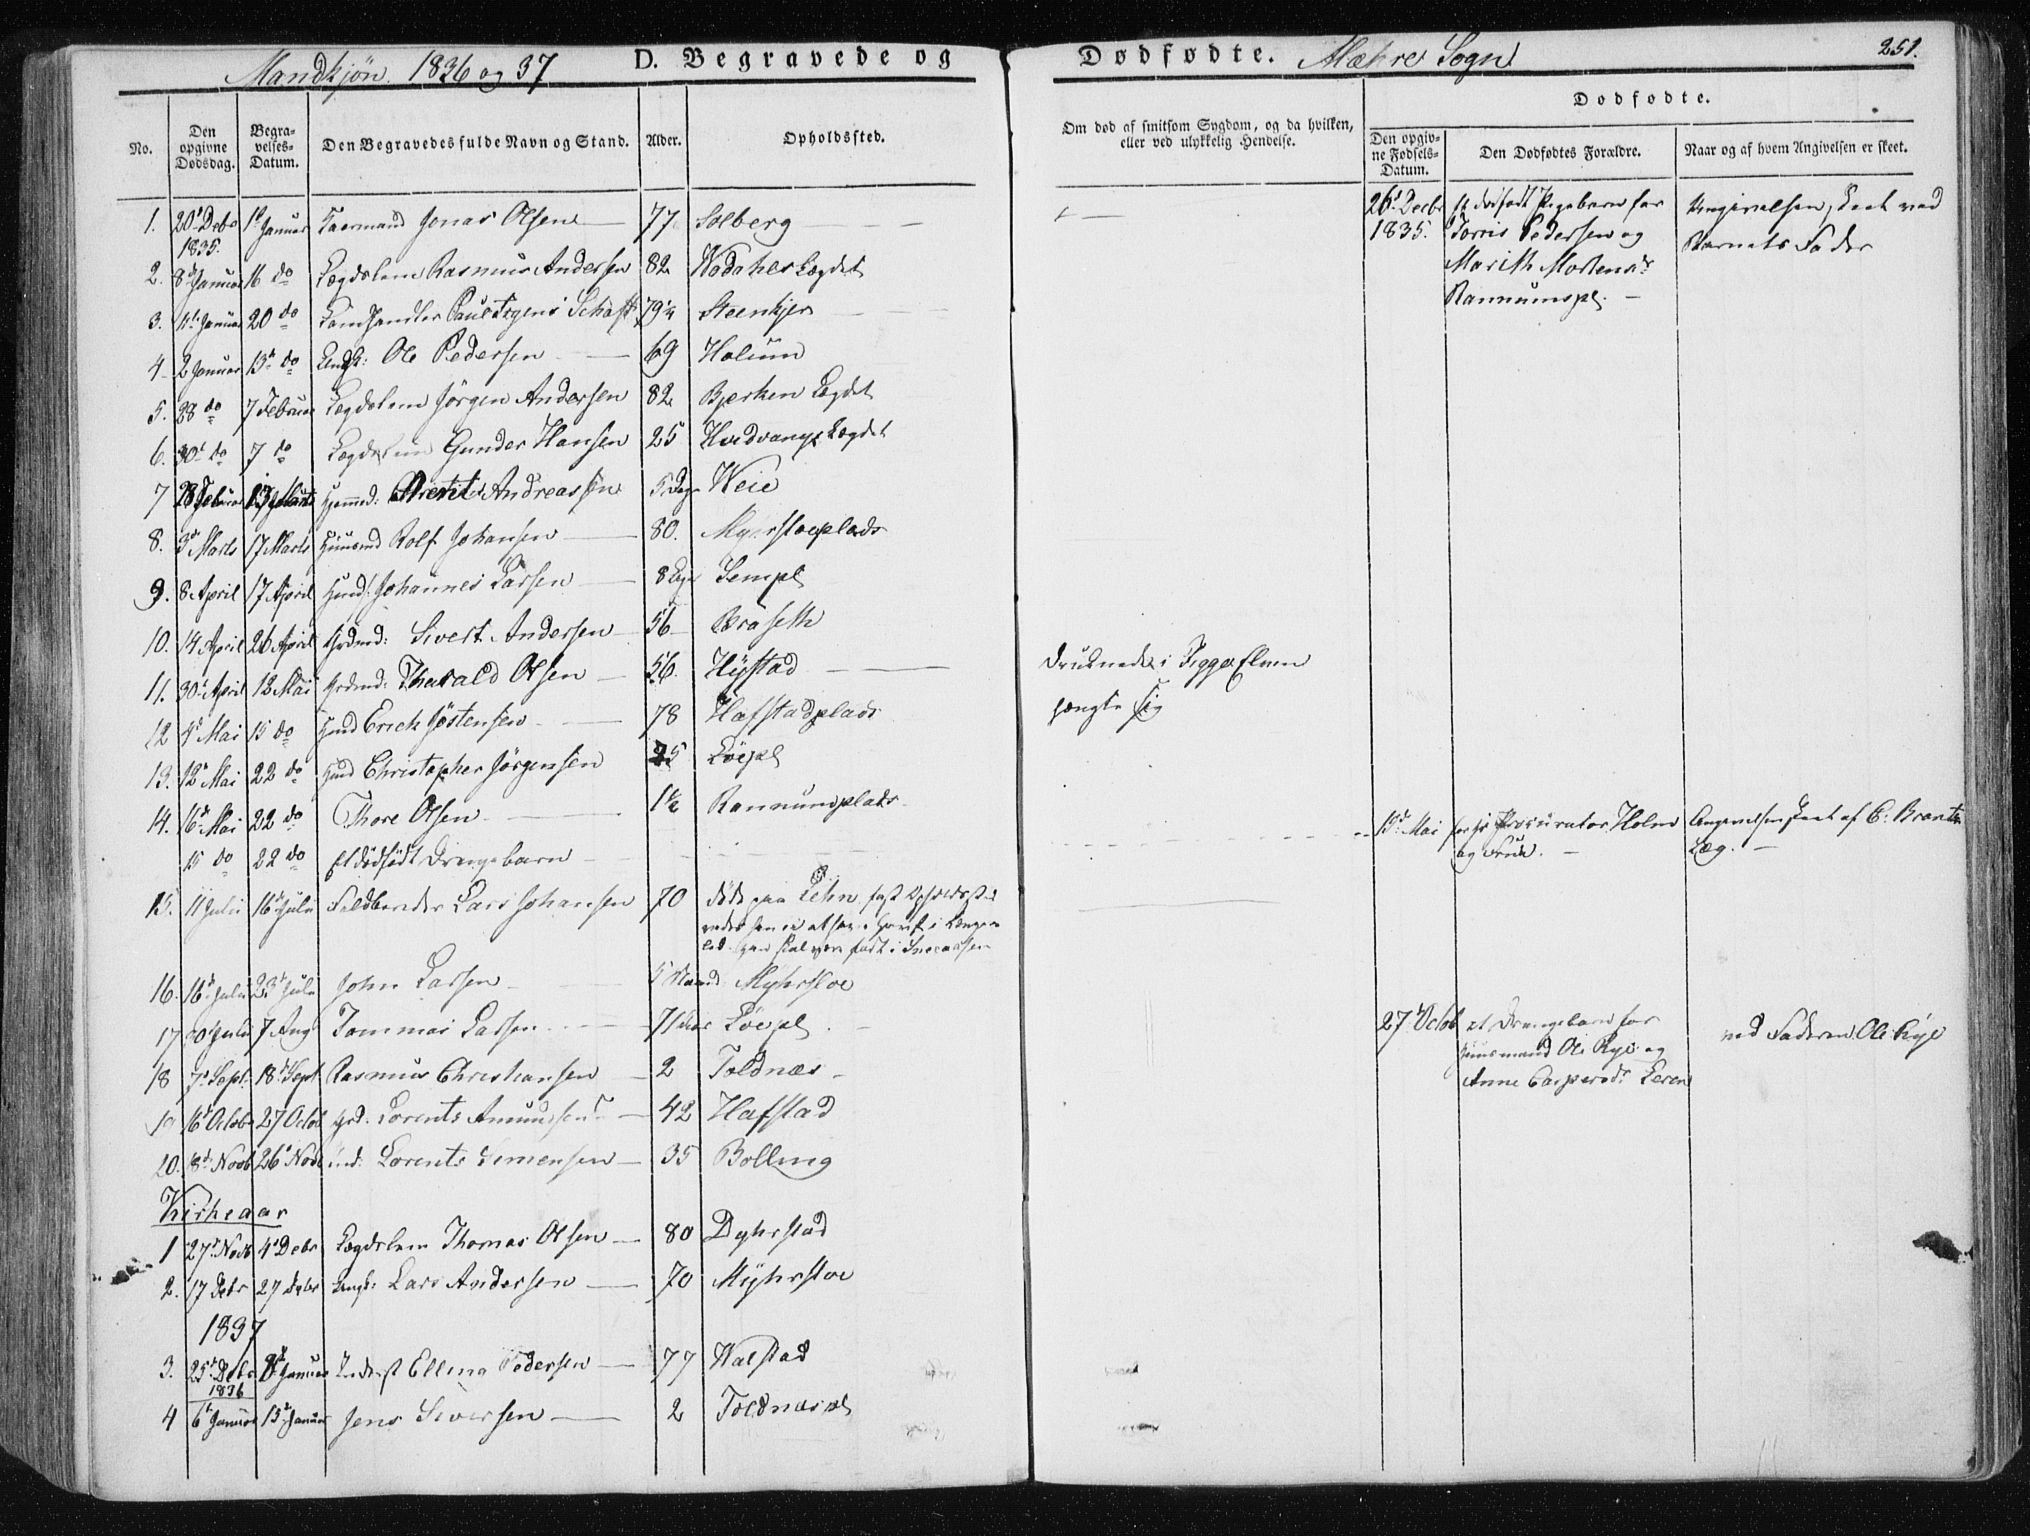 Mandkjøn. 1836 og 37 D. Begravede og Dødfødte. Mæhre Sogn 251.
No. Den opgivne Dødsdag. Begravelses-Datum. Den Begravedes fulde Navn og Stand. Alder. Opholdssted. Om død af smitsom Sygdom, og da hvilken, eller ved ulykkelig Hendelse. Dødfødte.
Den opgivne Fødsels-Datum. Den Dødfødtes Forældre. Naar og af hvem Angivelsen er skeet.
1. 20d Debr 1835. 1d Januar Jonas Olsen 77 Solberg
26d Decbr 1835. dødfødt Pigebarn for Torris Pedersen og Marith Mortensdr Rannumspl. Angivelsen skeet ved Barnets Fader
2. 8d Januar 16 do Lægdslem Rasmus Andersen 82 Lægdet
3. 11d Januar 20 do Paul 79 Steenkjer
4. 2 Januar 13d do Ole Pedersen 69 Holum
5. 28 do 7 Februar Lægdslem Jørgen Andersen 82 Bjerken Lægdet
6. 30d do 7 do Lægdslem Gunder Hansen 25 Lægdet
7 28 Februar 13 Marts Andreassen 5 Dage Weie
8. 3d Marts 17 Marts Huusmd Rolf Johansen 80. Myhrstoeplads
9. 8 April 17 April Johannes Larsen Sempl
10. 14 April 26 April Grdmd: Sivert Andersen 56 Braseth
11. 30d April 12 Mai Grdmd: Tharald Olsen 56. Hÿstad Druknede i Figga Elven
12 4d Mai 15 do Erich Jøstensen 78 Hafstadplads hængte sig
13. 12d Mai 22 do Christopher Jørgensen 25 Løepl
14. 16d Mai 22 do Thore Olsen 1½ Rannumplads
15 do 22 do Et dödfödt Drengebarn 15d Mai Procurator Holm og Frue. Angivelsen skeet af C: Brandt Læg.
15. 11 Juli 16d Juli Lars Johansen 70 døde paa Lehn fast Opholdsted
16. 16d Juli 23d Juli John Larsen 5 Maand Myhrstoe
17 30 Juli 7 Aug Tommas Larsen 71 Løepl.
27d Octob et Drengebarn for Huusmand Ole Rye og Anne Caspersdr Leren ved Faderen Ole Rye
18 7d Sept. 18d Sept Rasmus Christiansen 2 Toldnæs
19 16d Octob 27 Octob Lorents Amundsen 42 Hafstad
20. 18d Novb 26d Novb Lorents Simensen 35 Bolling
Kirkeaar
1 27d Novb 4d Debr Lægdslem Thomas Olsen 80 Dyhrstad
2. 17 Debr 27 Debr Lars Andersen 70 Mÿhrstoe
1837
3. 25d Debr 1836 Januar Elling Pedersen 77 Walstad
4 6d Januar 15d Januar Jens Siversen 2 Toldnæspl